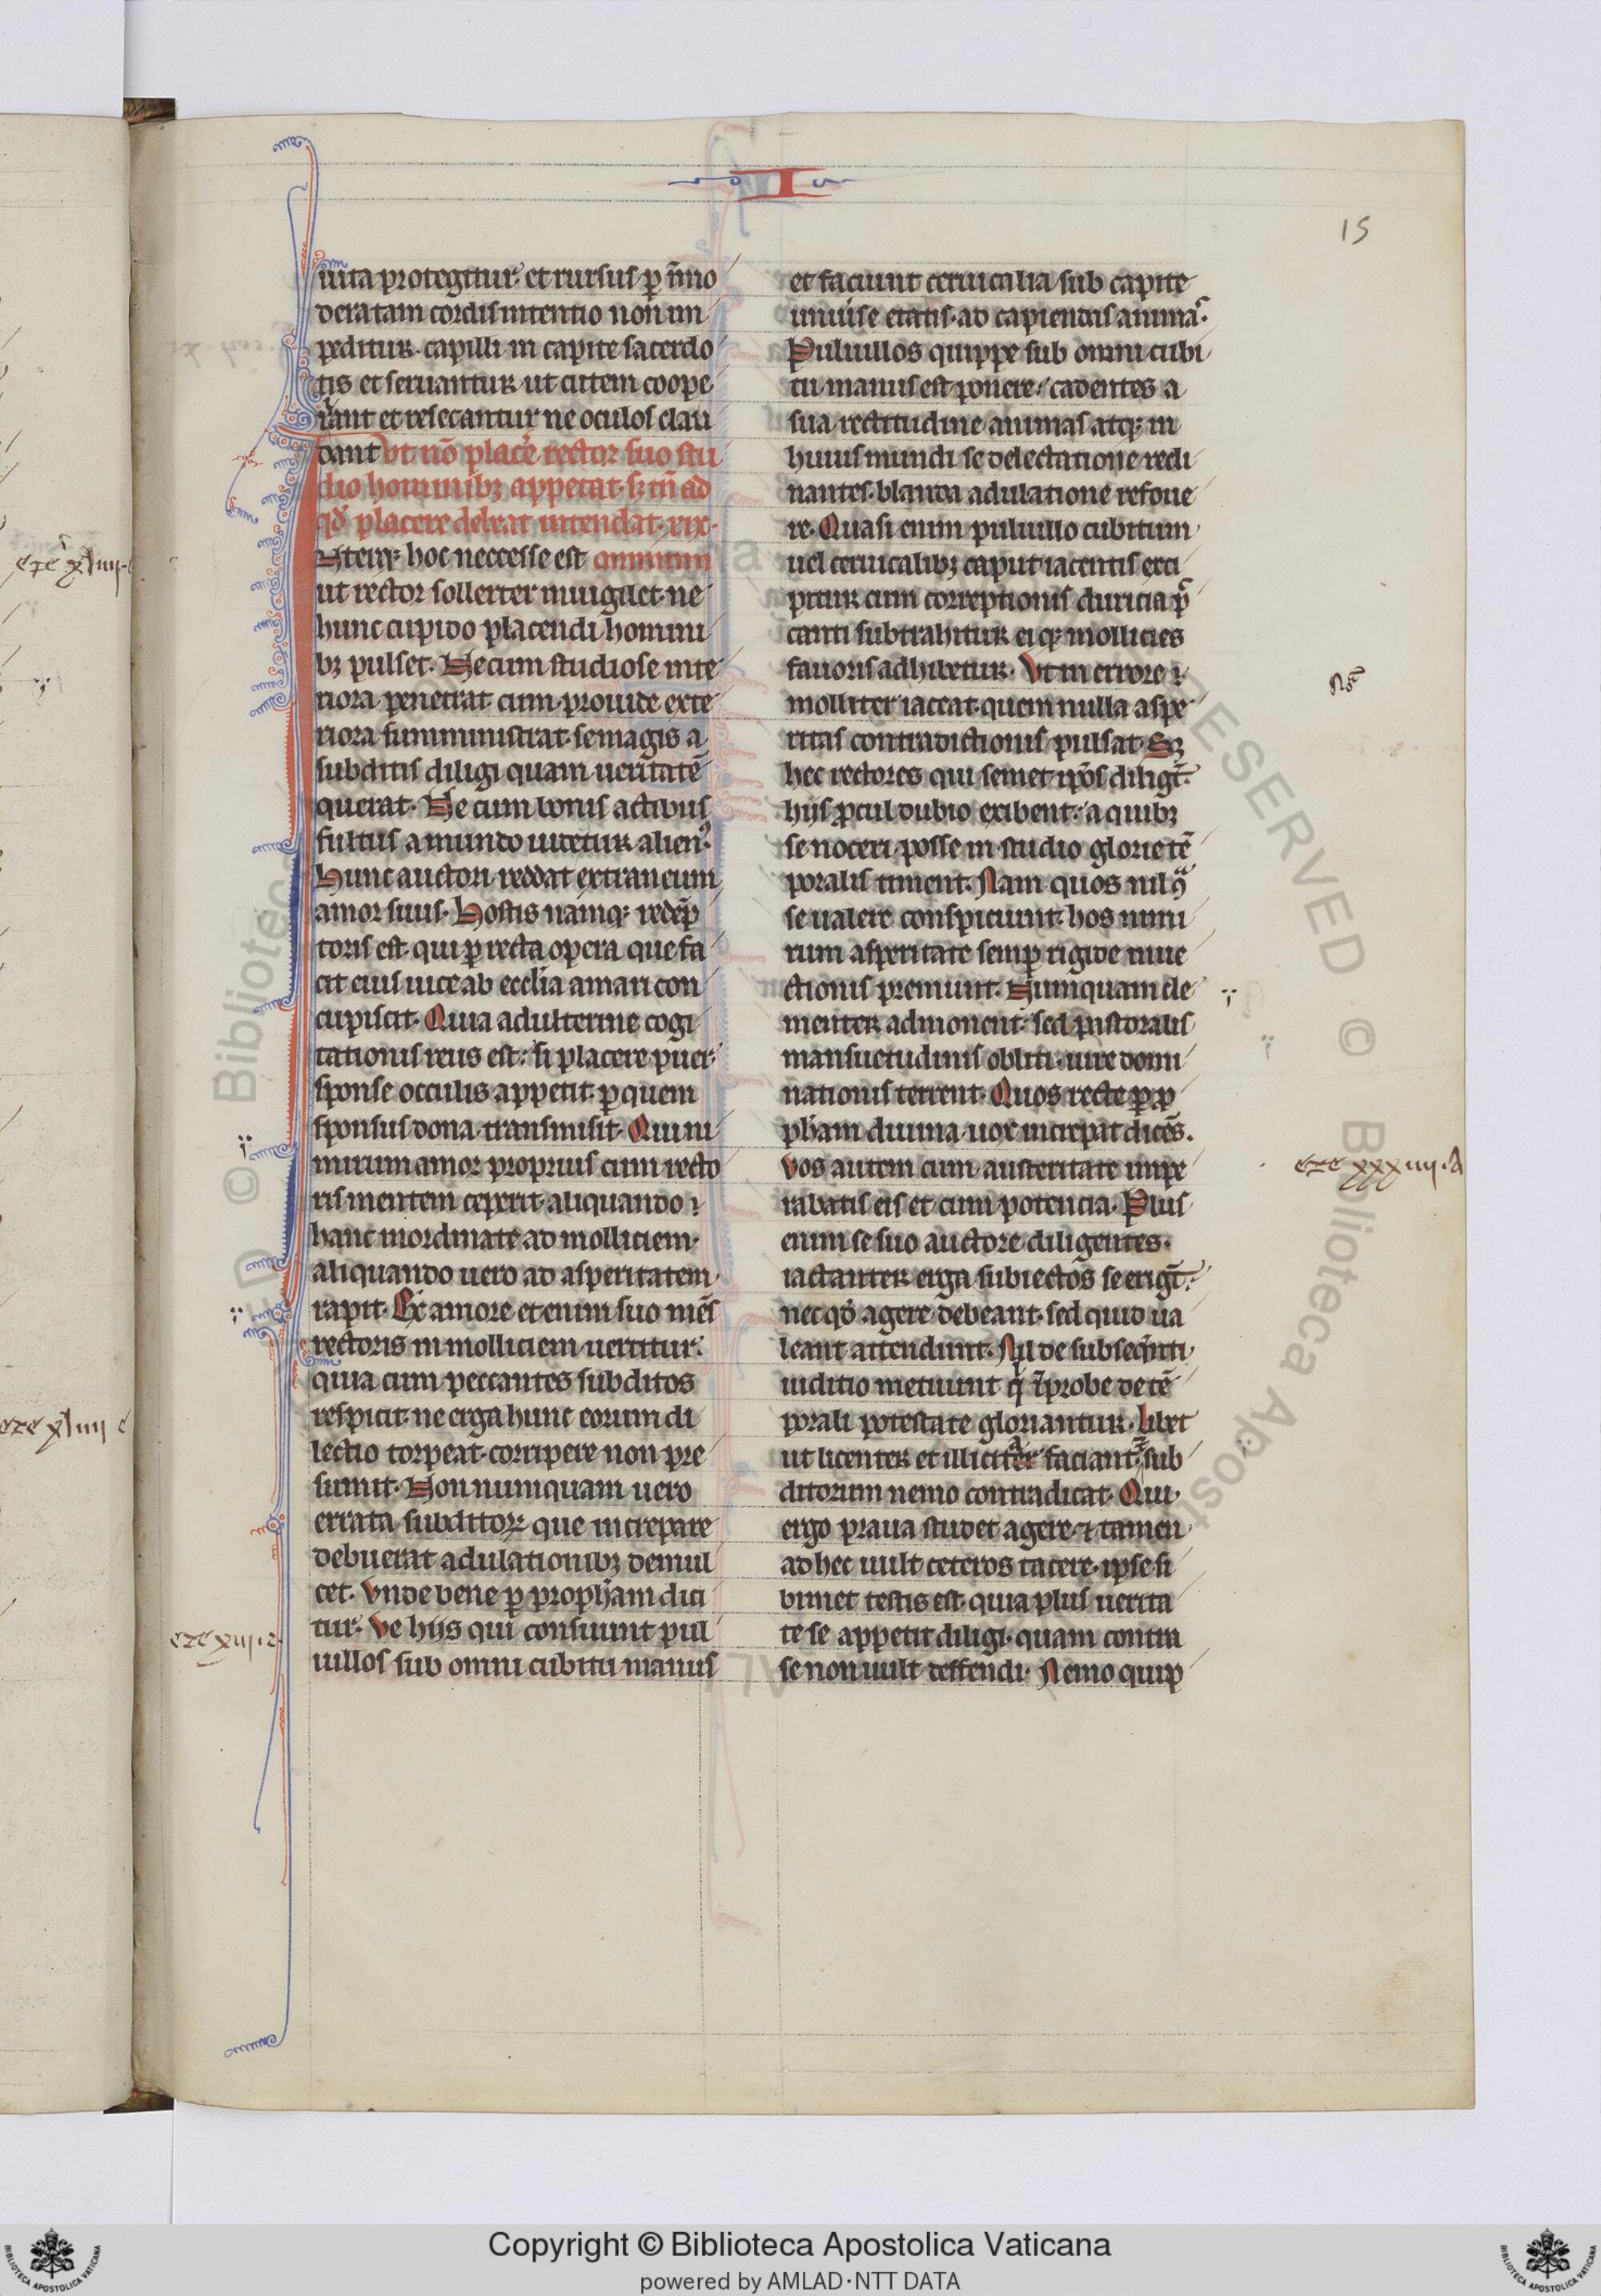 I
15
uita protegitur. et rursus ꝑ īmo
deratam cordis intentio non im
peditur. capilli in capite sacerdo
tis et seruantur ut cutem coope
riant et resecantur ne oculos clau
dant Vt nō placẽ rector suo stu
dio hominibꝫ appetat. sꝫ tn̄ ad
qd̛ placere debeat intendat. xix.
Inter hoc neccesse est
ut rector sollerter inuigilet. ne
hunc cupido placendi homini
bꝫ pulset. Ne cum studiose inte
riora penetrat. cum prouide exte
riora sumministrat. se magis a
subditis diligi quam ueritatē
querat. Ne cum bonis actibus
fultus a mundo uidetur alienꝰ.
Hunc auctori reddat extraneum
amor suus. Hostis namqꝫ redēp
toris est. qui ꝑ recta opera que fa
cit eius uice ab ecclīa amari con
cupiscit. Quia adulterine cogi
tationis reus est: si placere puer
sponse occulis appetit. ꝑ quem
sponsus dona transmisit. Qui ni
mirum amor proprius cum recto
ris mentem ceperit. aliquando
hanc inordinate ad molliciem.
aliquando uero ad asperitatem
rapit. Ex amore etenim suo mēs
rectoris in molliciem uertitur.
quia cum peccantes subditos
respicit. ne erga hunc eorum di
lectio torpeat. corripere non pre
sumit. Non numquam uero
errata subditoꝝ que increpare
debuerat adulationibꝫ demul
cet. Vnde bene ꝑ proph̄am dici
tur. Ve hijs qui consuunt pul
uillos sub omni cubitu manus
et faciunt ceruicalia sub capite
uniuīse etatis. ad capiendas animas.
Puluillos quippe sub omni cubi
tu manus est ponere. cadentes a
sua rectitudine animas atqꝫ in
huius mundi se delectatione recli
nantes. blanda adulatione refoue
re. Quasi enim puluillo cubitum
uel ceruicalibꝫ caput iacentis exci
pitur. cum correptionis duricia
canti subtrahitur. eiqꝫ mollicies
fauoris adhibetur. Vt in errore
molliter iaceat. quem nulla aspe
ritas contradictionis pulsat. Sꝫ
hec rectores qui semet ip̄os diligūt.
hijs ꝓcul dubio exibent: a quibꝫ
se noceri posse in studio glorie tē
poralis timent. Nam quos nil
se ualere conspiciunt. hos nimi
rum asperitate semꝑ rigide inue
ctionis premunt. Numquam cle
menter admonent. sed pastoralis
mansuetudinis obliti. iure domi
nationis terrent. Quos recte ꝑ ꝓ
ph̄am diuina uox increpat dicēs.
Vos autem cum austeritate impe
rabatis eis et cum potencia. Plus
enim se suo auctore diligentes.
iactanter erga subiectos se erigūt.
nec qd̛ agere debeant. sed quid ua
leant attendunt. Nil de subseq̄nti
iuditio metuunt. īprobe de tē
porali potestate gloriantur. Libet
ut licenter et illicita faciant. sub
ditorum nemo contradicat. Qui
ergo praua studet agere. ⁊ tamen
ad hec uult ceteros tacere. ipse si
bimet testis est. quia plus uerita
te se appetit diligi. quam contra
se non uult deffendi. Nemo quip
eze xliiii
eze xliiii c
eze xiii. e.
eze xxxiiii. A
Copyright © Biblioteca Apostolica Vaticana
powered by AMLAD·NTT DATA